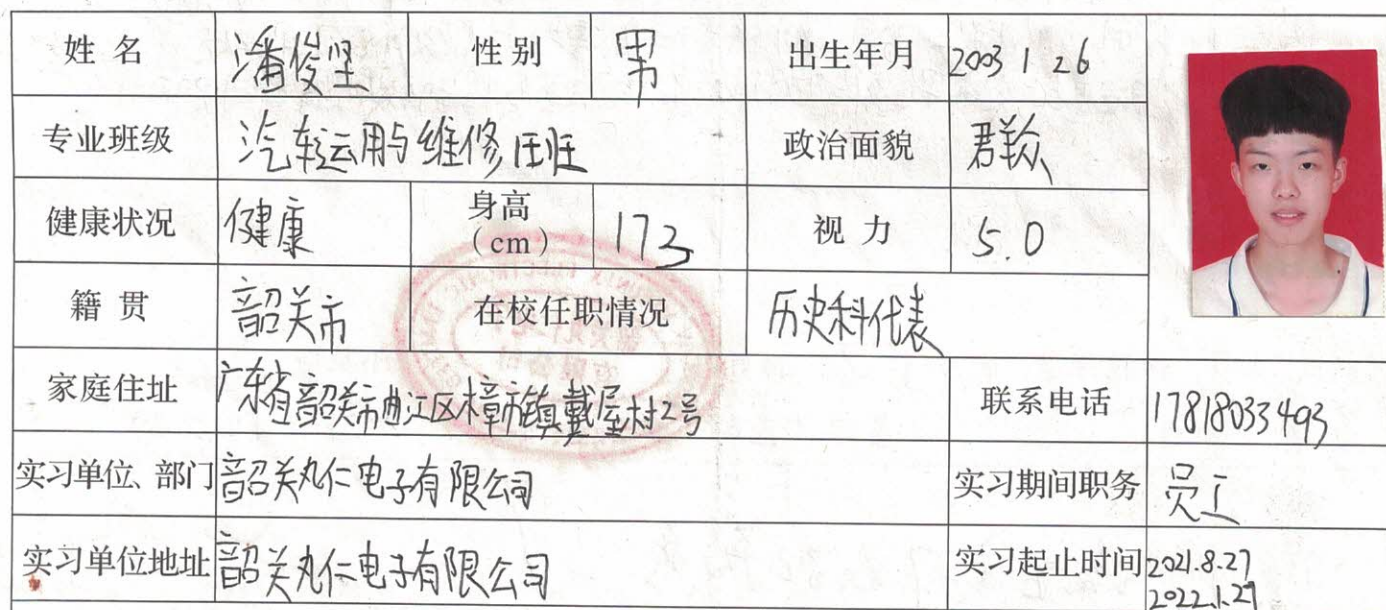 姓名 潘俊坚 性别 男 出生年月 2003 1 26
专业班级 汽车运用与维修 班 政治面貌 群众
健康状况 健康 身高(cm) 173 视力 5.0
籍贯 韶关市 在校任职情况 历史科代表
家庭住址 广东省韶关市曲江区樟市镇戴屋村2号 联系电话 17818033493
实习单位、部门 韶关丸仁电子有限公司 实习期间职务 员工
实习单位地址 韶关丸仁电子有限公司 实习起止时间 2021.8.27
2022.1.27